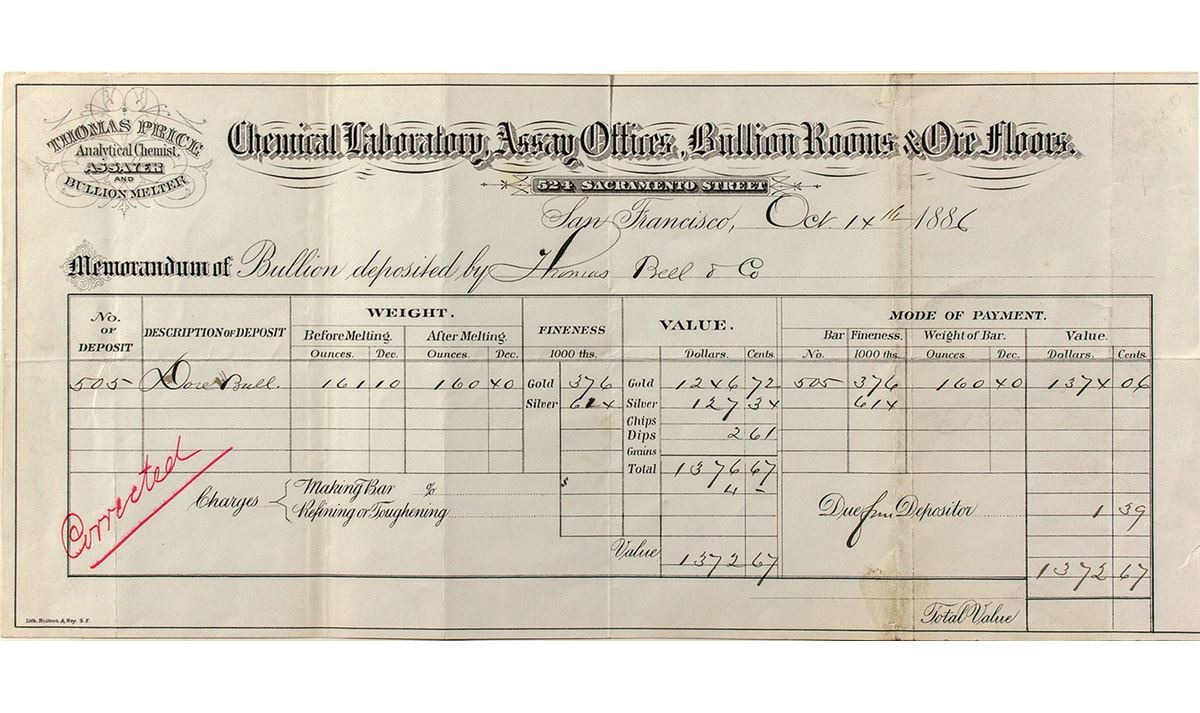 THOMAS PRICE
Analytical Chemist,
ASSAYER
AND
BULLION MELTER
Chemical Laboratory, Assay Offices, Bullion Rooms & Ore Floors.
524 SACRAMENTO STREET
San Francisco, Oct. 14th 1886
Memorandum of Bullion deposited by Thomas Bell & Co
No. or DEPOSIT DESCRIPTION OF DEPOSIT WEIGHT. FINENESS VALUE. MODE OF PAYMENT.
Before Melting. After Melting. Bar Fineness. Weight of Bar. Value.
Ounces. Dec. Ounces. Dec. 1000 ths. Dollars. Cents. No. 1000 ths. Ounces Dec. Dollars. Cents.
505 Dore Bull. 161 10 160 40 Gold 376 Gold 1246 72 505 376 160 40 1374 06
Silver 614 Silver 127 34 614
Chips
Dips 2 61
Grains
Total 1376 67
Corrected
Charges Making Bar % $ 4 -
Refining or Toughening Due frm Depositor 1 39
Value 1372 67 1372 67
Total Value
Lith. Britton & Rey. S.F.